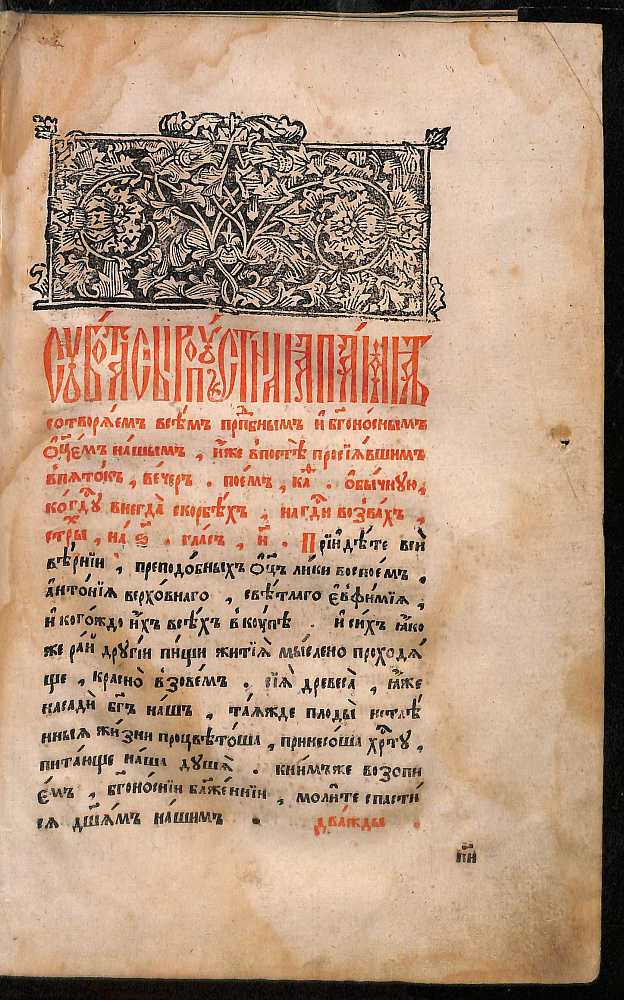 СУББО́ТА СЫРОПУ́СТНАѦ ПА́МѦТЬ
сотворѧ́емъ всѣ́мъ прⷣпбнымъ и҆ бг҃оно́снымъ
ѻ҆ц҃е́мъ на́шымъ , и҆́же впостѣ̀ просїѧ́вшимъ
впѧто́къ , ве́черъ . пое́мъ , каⷴ . ѻ҆бы́чную ,
внегда̀ скорбѣ́хъ , нагдⷭ҇и возва́хъ ,
стрⷯы , на̀ ѕ҃ . гла́съ , и҃ . Прїиді́те всѝ
вѣ́рнїи , преподо́бныхъ ѻ҆ц҃ъ ли́ки воспое́мъ .
а҆нтѡ́нїѧ верхо́внаго , свѣ́тлаго є҆ѵфи́мїѧ ,
и҆ кого́ждо и҆́хъ всѣ́хъ вкꙋ́пѣ . и҆ си́хъ ꙗ҆́ко
же ра́й дрꙋгі́и пи́щи житїѧ̀ мы́слено проходѧ́
ще , кра́сно взове́мъ . сїѧ̀ древеса̀ , ꙗ҆́же
насадѝ бг҃ъ на́шъ , та́ѧжде плоды̀ нетлѣ́
нныѧ жи́зни процвѣто́ша , принесо́ша хрⷭ҇тꙋ̀ ,
пита́юще на́ша дꙋ́шѧ . кни́мъже возопи
е́мъ , бг҃оно́снїи бл҃же́ннїи , моли́те спасти́
сѧ дш҃а́мъ на́шимъ . два́жды .
п҃и